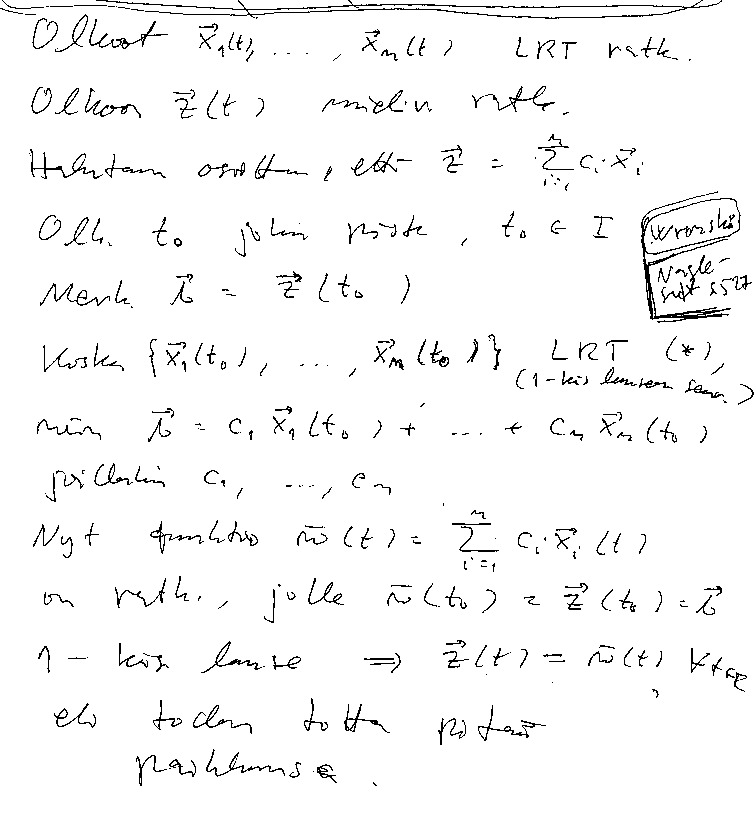 Olkoot x⃗₁(t), ..., x⃗ₙ(t) LRT ratk.
Olkoon z⃗(t) mieliv. ratk.
Halutaan osoittaa, että z⃗ = Σᵢ₌₁ⁿ cᵢ x⃗ᵢ
Olk. t₀ jokin piste, t₀ ∈ I
Wronski
Nagle-
Saff s 527
Merk. b⃗ = z⃗(t₀)
Koska {x⃗₁(t₀), ..., x⃗ₙ(t₀)} LRT (*),
(1-käs lauseen seur.)
niin b⃗ = c₁ x⃗₁(t₀) + ... + cₙ x⃗ₙ(t₀)
joillakin c₁, ..., cₙ
Nyt funktio w̄(t) = Σᵢ₌₁ⁿ cᵢ x⃗ᵢ(t)
on ratk., jolle w̄(t₀) = z⃗(t₀) = b⃗
1-käs. lause ⇒ z⃗(t) = w̄(t) ∀t∈I
eli todella totta pitää
paikkansa.